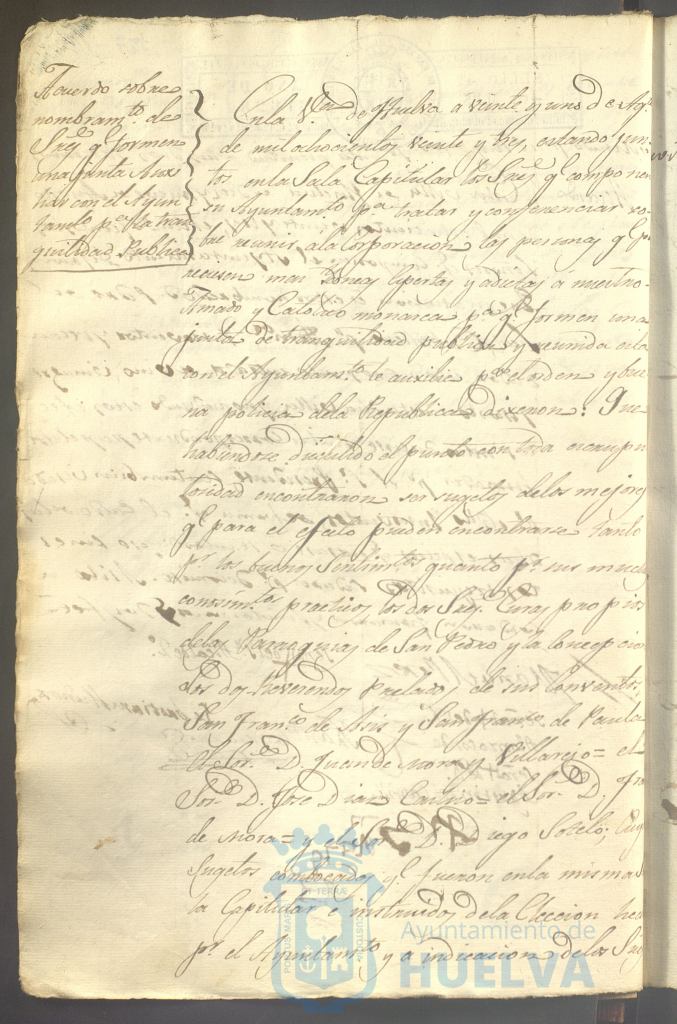 Acuerdo sobre
nombramto. de
Sres. q. formen
una junta Aux
iliar con el Ayun
tamto pa. la tran
quilidad Publica
En la Va. de Huelva a veinte y uno de Ag.
de mil ochocientos veinte y tres, estando jun
tos en la Sala Capitular los Sres. q. componen
su Ayuntamto pa. tratar y conferenciar so
bre reunir a la Corporacion las personas q.
recusen mas Doneas expertas y adictas á nuestro
Amado y Catolico monarca pa. q. formen una
junta de tranquilidad publica y reunida esta
con el Ayuntamto. le auxilie pa. el orden y bue
na policia de la Republica Dixeron: Que
habiendose discutido el punto con toda escrupu
losidad encontraron ser sugetos de los mejores
q. para el efecto pueden encontrarse tanto
pr. los buenos sentimtos quanto pr. sus
conosimtos practicos los dos Sres. Curas propios
de las Parroquias de San Pedro y la Concepcion
Los dos Reverendos Prelados de sus Conventos
San Franco. de Asis y San Franco. de Paula
el Sor. D. Juan de Mora y Villarejo = el
Sor. D. Jose Diaz = el Sor. D.
de Mora = y el Sor. D. Diego Sotelo;
sugetos combocados q. fueron en la misma
la Capitular é instruidos de la Eleccion
pr. el Ayuntamto y a indicacion de los
PORTUS MARIS ET TERRÆ CUSTODIA
Ayuntamiento de
HUELVA